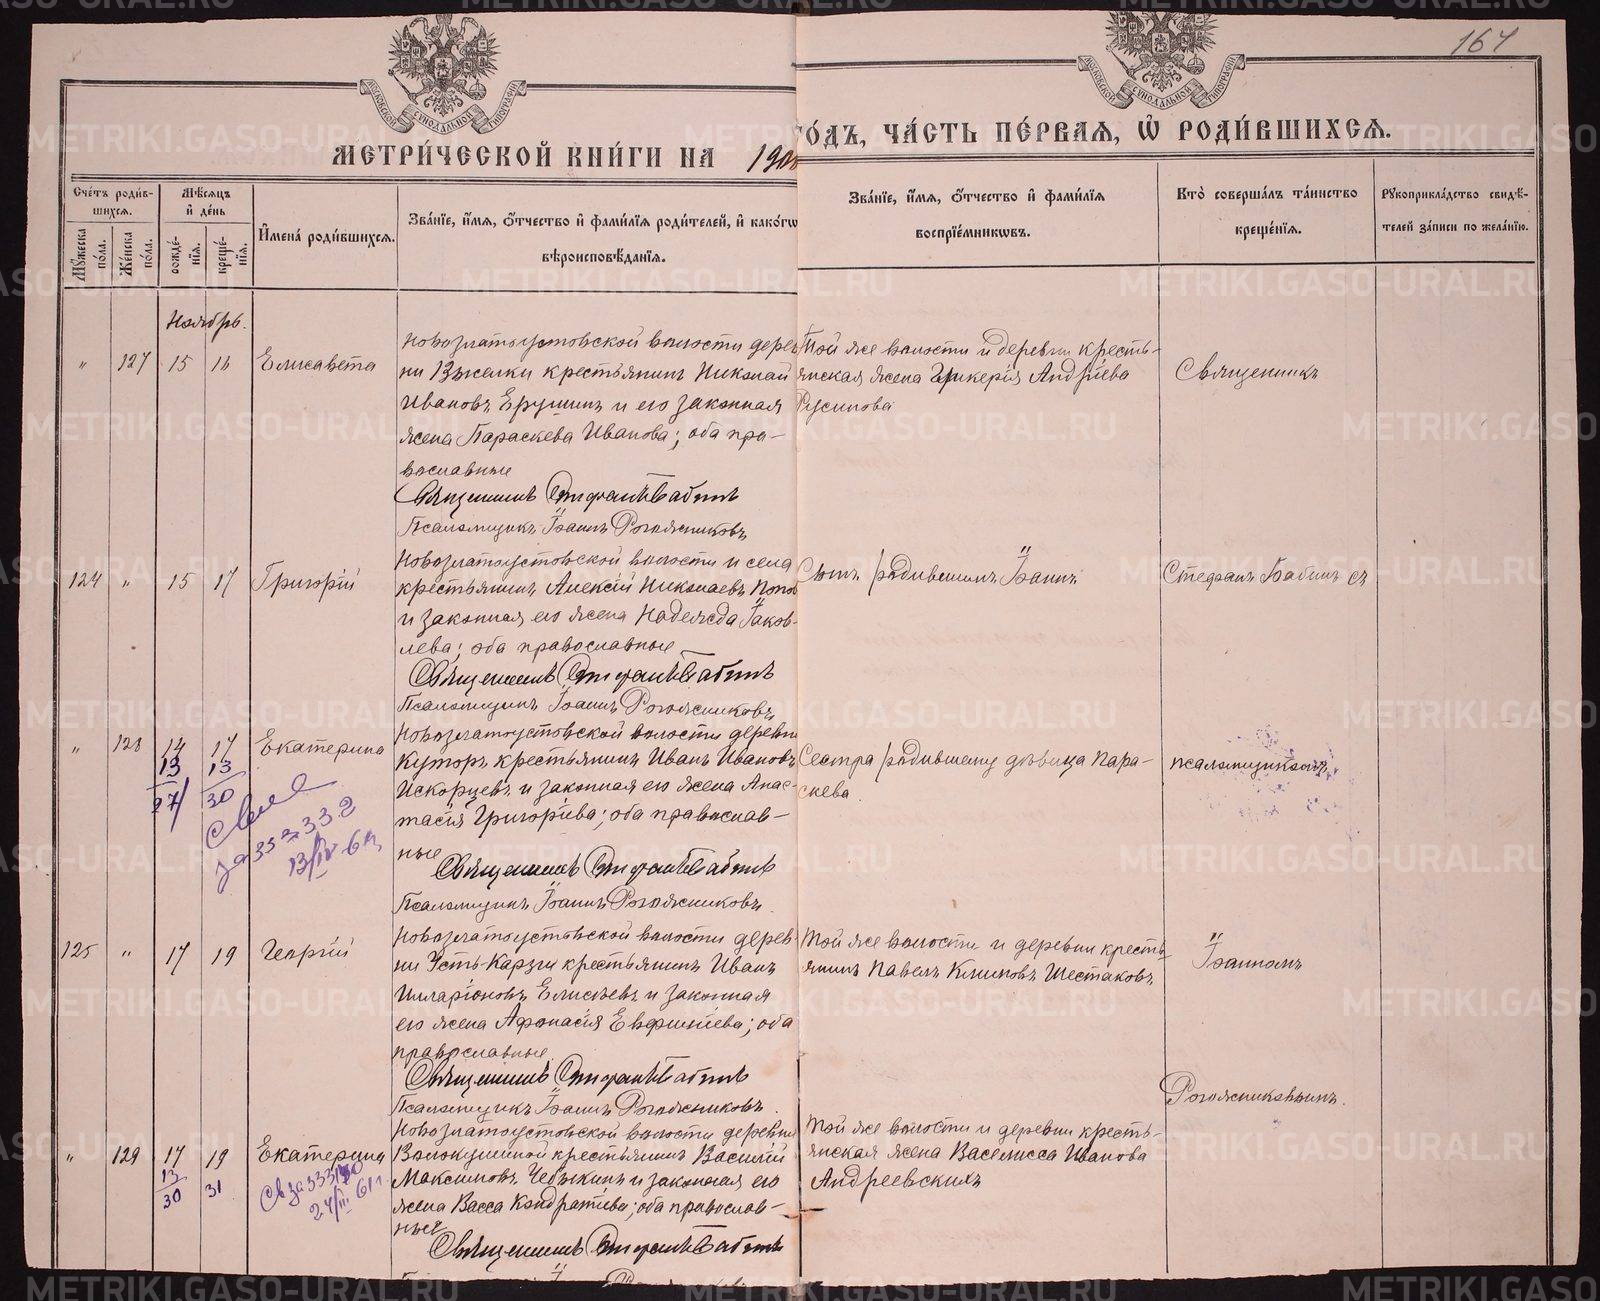 164
МОСКОВСКОЙ СѴНОДАЛЬНОЙ ТИПОГРАФІИ
МОСКОВСКОЙ СѴНОДАЛЬНОЙ ТИПОГРАФІИ
МЕТРИ́ЧЕСКОЙ КНИ́ГИ НА
ГО́ДЪ, ЧА́СТЬ ПЕ́РВАѦ, Ѽ РОДИ́ВШИХСѦ.
Сче́тъ роди́в-
шихсѧ.
Мꙋ́жеска по́ла.
Же́нска по́ла.
Мѣ́сѧцъ
и҆ де́нь
рожде́-
нїѧ.
креще́-
нїѧ.
И҆мена̀ роди́вшихсѧ.
Зва́нїе, и҆́мѧ, ѻ҆́тчество и҆ фами́лїѧ роди́телей, и҆ како́гѡ
вѣроисповѣ́данїѧ.
Зва́нїе, и҆́мѧ, ѻ҆́тчество и҆ фами́лїѧ
воспрїе́мникѡвъ.
Кто̀ соверша́лъ та́инство
креще́нїѧ.
Рꙋкоприкла́дство свидѣ́-
телей за́писи по жела́нїю.
Ноябрь.
" 127 15 16 Елисавета
Новозлатоустовской волости дерев
ни Выселки крестьянинъ Николай
Ивановъ Ерушинъ и его законная
жена Параскева Иванова; оба пра-
вославные
Священникъ Стефанъ Бабинъ
Псаломщикъ Іоаннъ Рогожниковъ
Той же волости и деревни кресть-
янская жена Гликерія Андріева
Русинова
Священникъ
124 " 15 17 Григорій
Новозлатоустовской волости и села
крестьянинъ Алексій Николаевъ Попов
и законная его жена Надежда Іаков-
лева; оба православные
Священникъ Стефанъ Бабинъ
Псаломщикъ Іоаннъ Рогожниковъ
Сынъ родившихъ Іоаннъ
Стефанъ Бабинъ съ
" 128 14 17 Екатерина
13 13
27 30
332332
13/IV-61г.
Новозлатоустовской волости деревни
Куторъ крестьянинъ Иванъ Ивановъ
Искорцевъ и законная его жена Анас-
тасія Григоріева; оба православ-
ные
Священникъ Стефанъ Бабинъ
Псаломщикъ Іоаннъ Рогожниковъ.
Сестра родившему дѣвица Пара-
скева
псаломщикомъ
125 " 17 19 Георгій
Новозлатоустовской волости дерев
ни Усть-Карзи крестьянинъ Иванъ
Илларіоновъ Елисѣевъ и законная
его жена Афонасія Евфиміева; оба
православные
Священникъ Стефанъ Бабинъ
Псаломщикъ Іоаннъ Рогожниковъ.
Той же волости и деревни кресть-
янинъ Павелъ Климовъ Шестаковъ
Іоанномъ
Рогожниковымъ.
" 129 17 19 Екатерина
13
30 31
24/III 61г.
Новозлатоустовской волости деревни
Волокушиной крестьянинъ Василій
Максимовъ Чебыкинъ и законная его
жена Васса Кондратіева; оба православ-
ные
Священникъ Стефанъ Бабинъ
Той же волости и деревни кресть-
янская жена Василисса Иванова
Андреевскихъ
METRIKI.GASO-URAL.RU